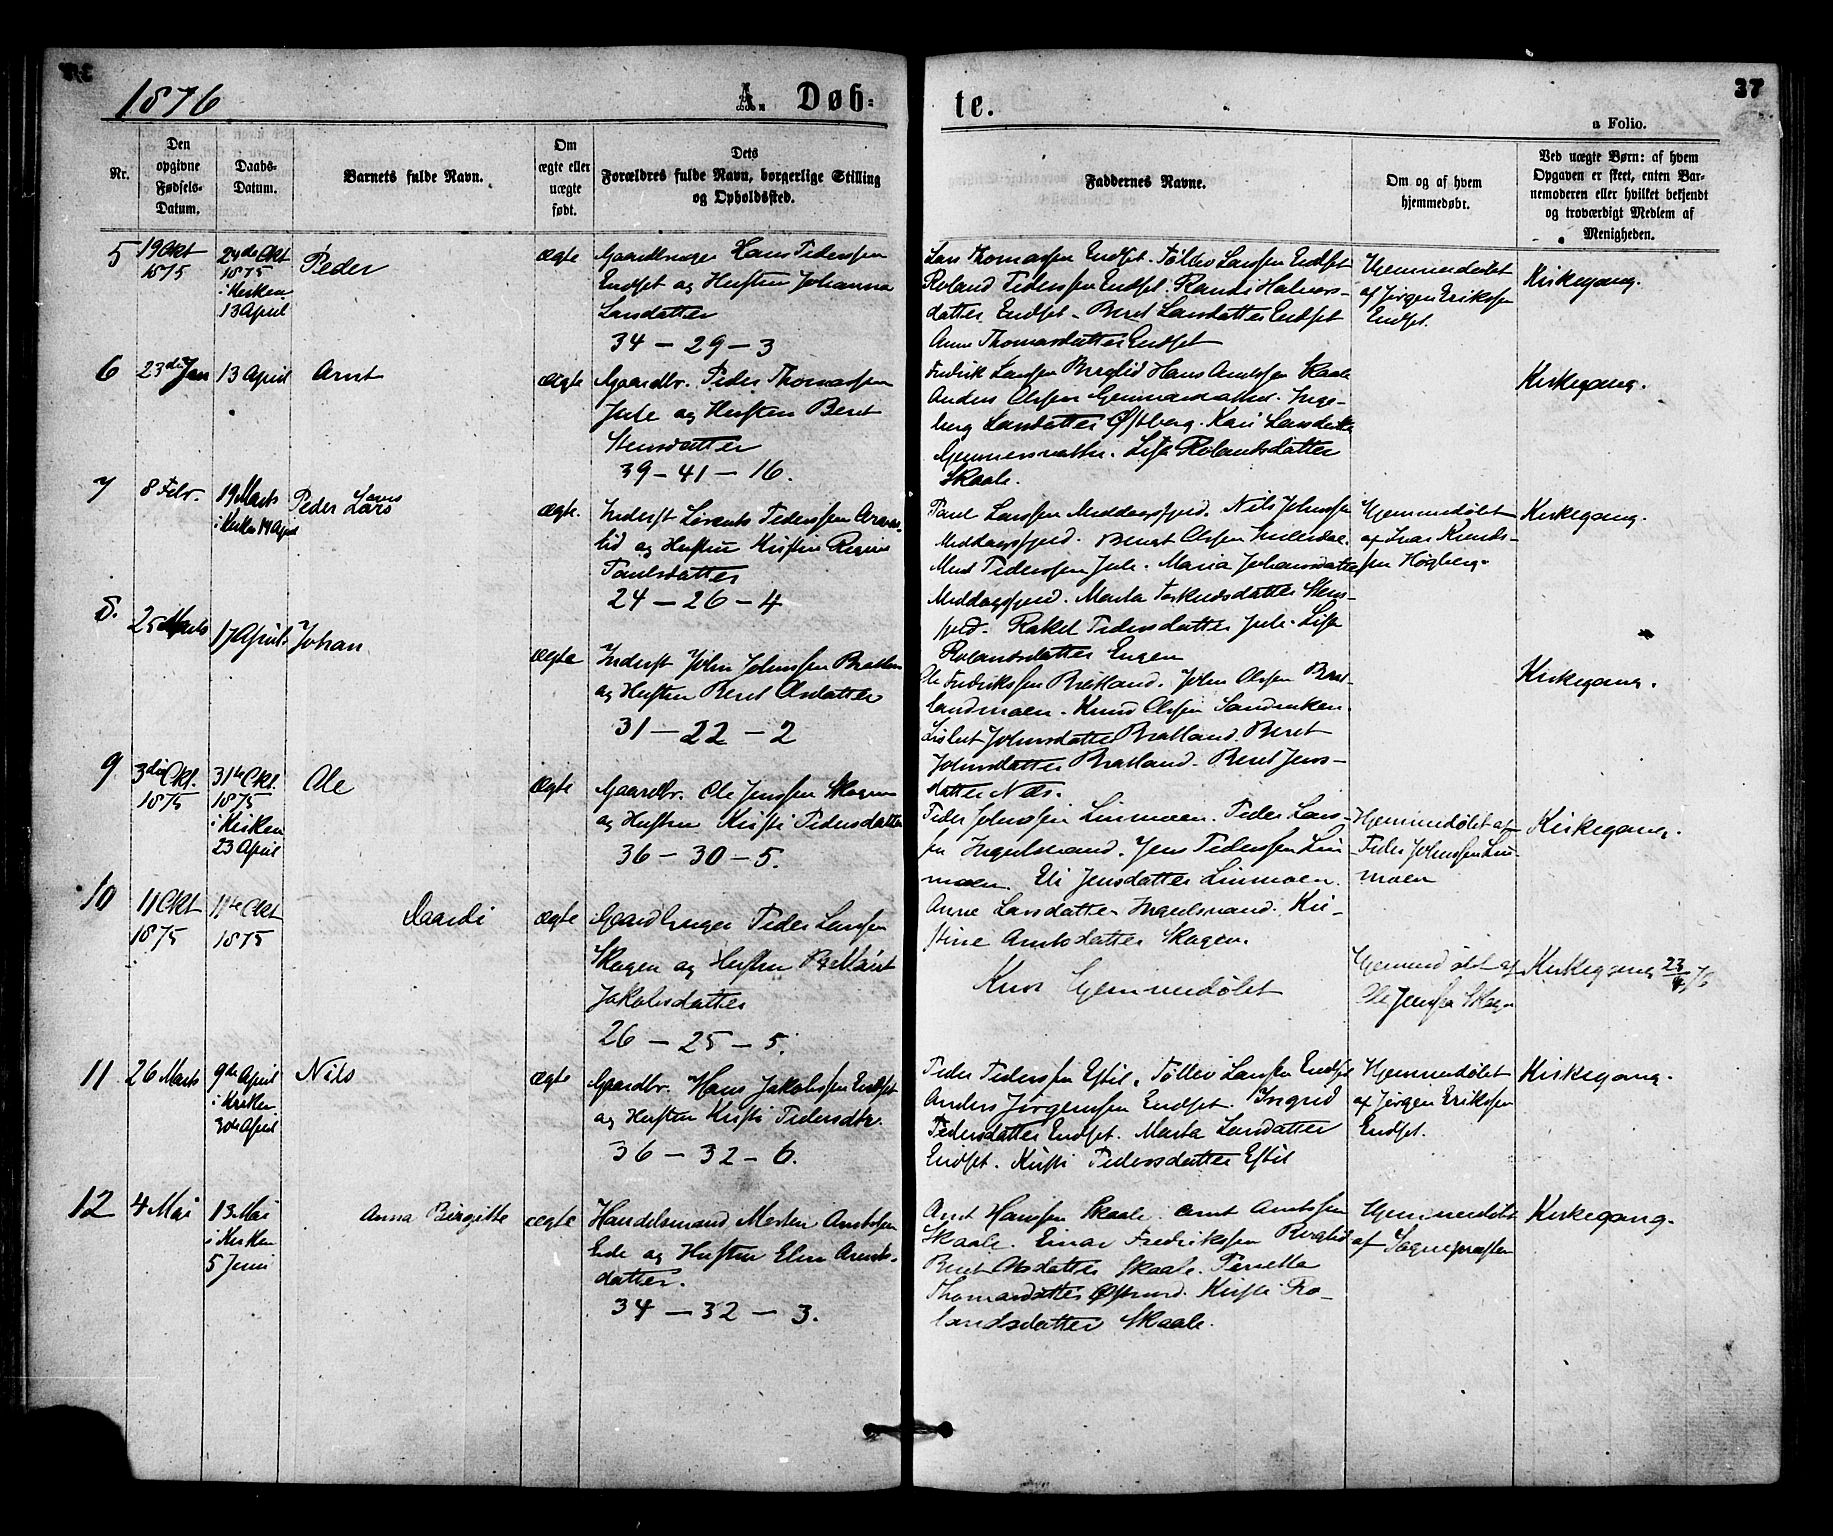 1876
A. Døb=
te.
37
a Folio.
Nr.
Den opgivne Fødsels-Datum.
Daabs-Datum.
Barnets fulde Navn.
Om ægte eller uægte født.
Dets Forældres fulde Navn, borgerlige Stilling og Opholdssted.
Faddernes Navne.
Om og af hvem hjemmedøbt.
Ved uægte Børn: af hvem Opgaven er skeet, enten Barnemoderen eller hvilket bekjendt og troværdigt Medlem af Menigheden.
5
19 Okt 1875
24de Okt 1875 i Kirken 13 April
Peder
ægte
Gaardbruger Hans Pederssen
Endset og Hustru Johanna
Larsdatter
34 — 29 — 3
Lars Thomassen Endset. Tøllev Larssen Endset
Roland Pederssen Endset. Randi Halvors-
datter Endset. Beret Larsdatter Endset
Anne Thomasdatter Endset
Hjemmedøbt
af Jørgen Erikssen
Endset.
Kirkegang.
6
23de Jan
13 April
Arnt
ægte
Gaardbr. Peder Thomassen
Jule og Hustru Beret
Stensdatter
39 — 41 — 16.
Fredrik Larssen Berglid Hans Arntssen Skaale
Anders Olssen Inge-
borg Larsdatter Østborg. Kari Larsdatter
Lisa Rolandsdatter
Skaale.
Kirkegang.
7
8 Febr.
19 Marts
i Kirken 14 April
Peder Lars
ægte.
Inderst Lorents Pederssen
lid og Hustru Kirstin Regine
Paulsdatter
24 — 26 — 4
Paul Larssen Meddagsfjeld. Nils Johnssen
Meddagsfjeld. Bengt Olssen
Pederssen Jule. Maria Johansdatter
Meddagsfjeld. Marta
fjeld. Rakel Pedersdatter Jule. Lisa
Rolandsdatter Engen
Hjemmedøbt
af Ivar Knuds-
sen Høgberg.
Kirkegang.
8.
25 Marts
17 April
Johan
ægte
Inderst John Johnssen Bratland
og Hustru Beret Olsdatter
31 — 22 — 2
Ole Fredrikssen Bratland. John Olssen Brat-
landmoen. Knud Olssen
Lisbet Johnsdatter Bratland. Beret
Johnsdatter Bratland. Beret Jens-
datter Næs.
Kirkegang.
9
3die Okt. 1875
31te Okt. 1875 i Kirken 23 April
Ole
ægte
Gaardbr. Ole Jenssen Skagen
og Hustru Kirsti Pedersdatter
36 — 30 — 5.
Peder Johnssen Linmoen. Peder Lars-
sen Ingulsvand. Jens Pederssen Lin-
moen. Eli Jensdatter Linmoen.
Anne Larsdatter Ingulsvand. Kir-
stine Arntsdatter Skagen.
Hjemmedøbt af
Peder Johnssen Lin-
moen
Kirkegang.
10
11 Okt 1875
11te Okt 1875
ægte
Gaardbruger Peder Larssen
Skagen og Hustru
Jakobsdatter
26 — 25 — 5.
Kun hjemmedøbt
Hjemmedøbt af
Ole Jenssen Skagen
Kirkegang 23/4 76
11
26 Marts
9de April i Kirken 30te April
Nils
ægte
Gaardbr. Hans Jakobssen Endset
og Hustru Kirsti Pedersdtr.
36 — 32 — 6.
Peder Pederssen Estil. Tøllev Larssen Endset
Anders Jørgenssen Endset. Ingrid
Pedersdatter Endset. Marta Larsdatter
Endset. Kirsti Pedersdatter Estil
Hjemmedøbt
af Jørgen Erikssen
Endset.
Kirkegang.
12
4 Mai
13 Mai i Kirken 5 Juni
Anna Birgitte
ægte
Handelsmand Morten Arntssen
Eide og Hustru Elen Arnts-
datter.
34 — 32 — 3.
Arnt Hanssen Skaale. Arnt Arntssen
Skaale. Einar Fredrikssen Berglid
Beret Olsdatter Skaale. Pernella
Thomasdatter Kirsti Ro-
landsdatter Skaale.
Hjemmedøbt
af Sognepresten
Kirkegang.